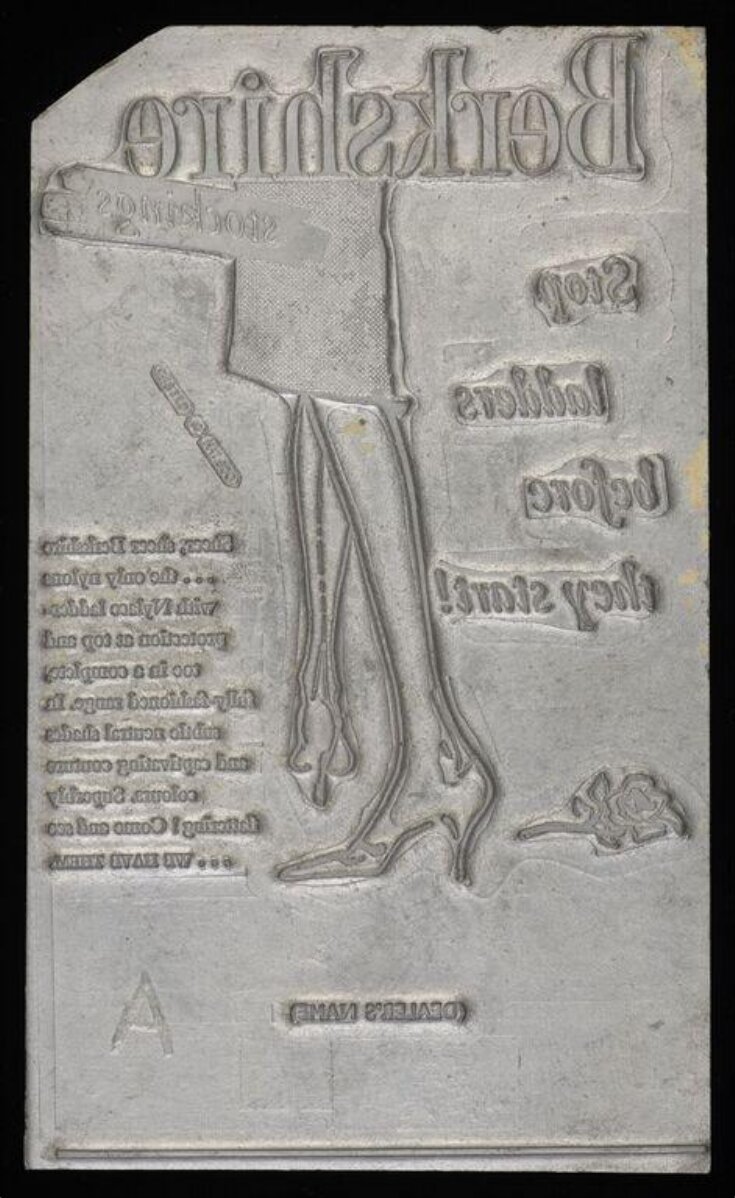 Berkshire
stockings
Stop
ladders
before
they start!
Sheer, sheer Berkshire
.... the only nylons
with Nylace ladder-
protection at top and
toe in a complete,
fully-fashioned range. In
subtle neutral shades
and captivating couture
colours. Superbly
flattering! Come and see
... WE HAVE THEM.
(DEALER'S NAME)
A